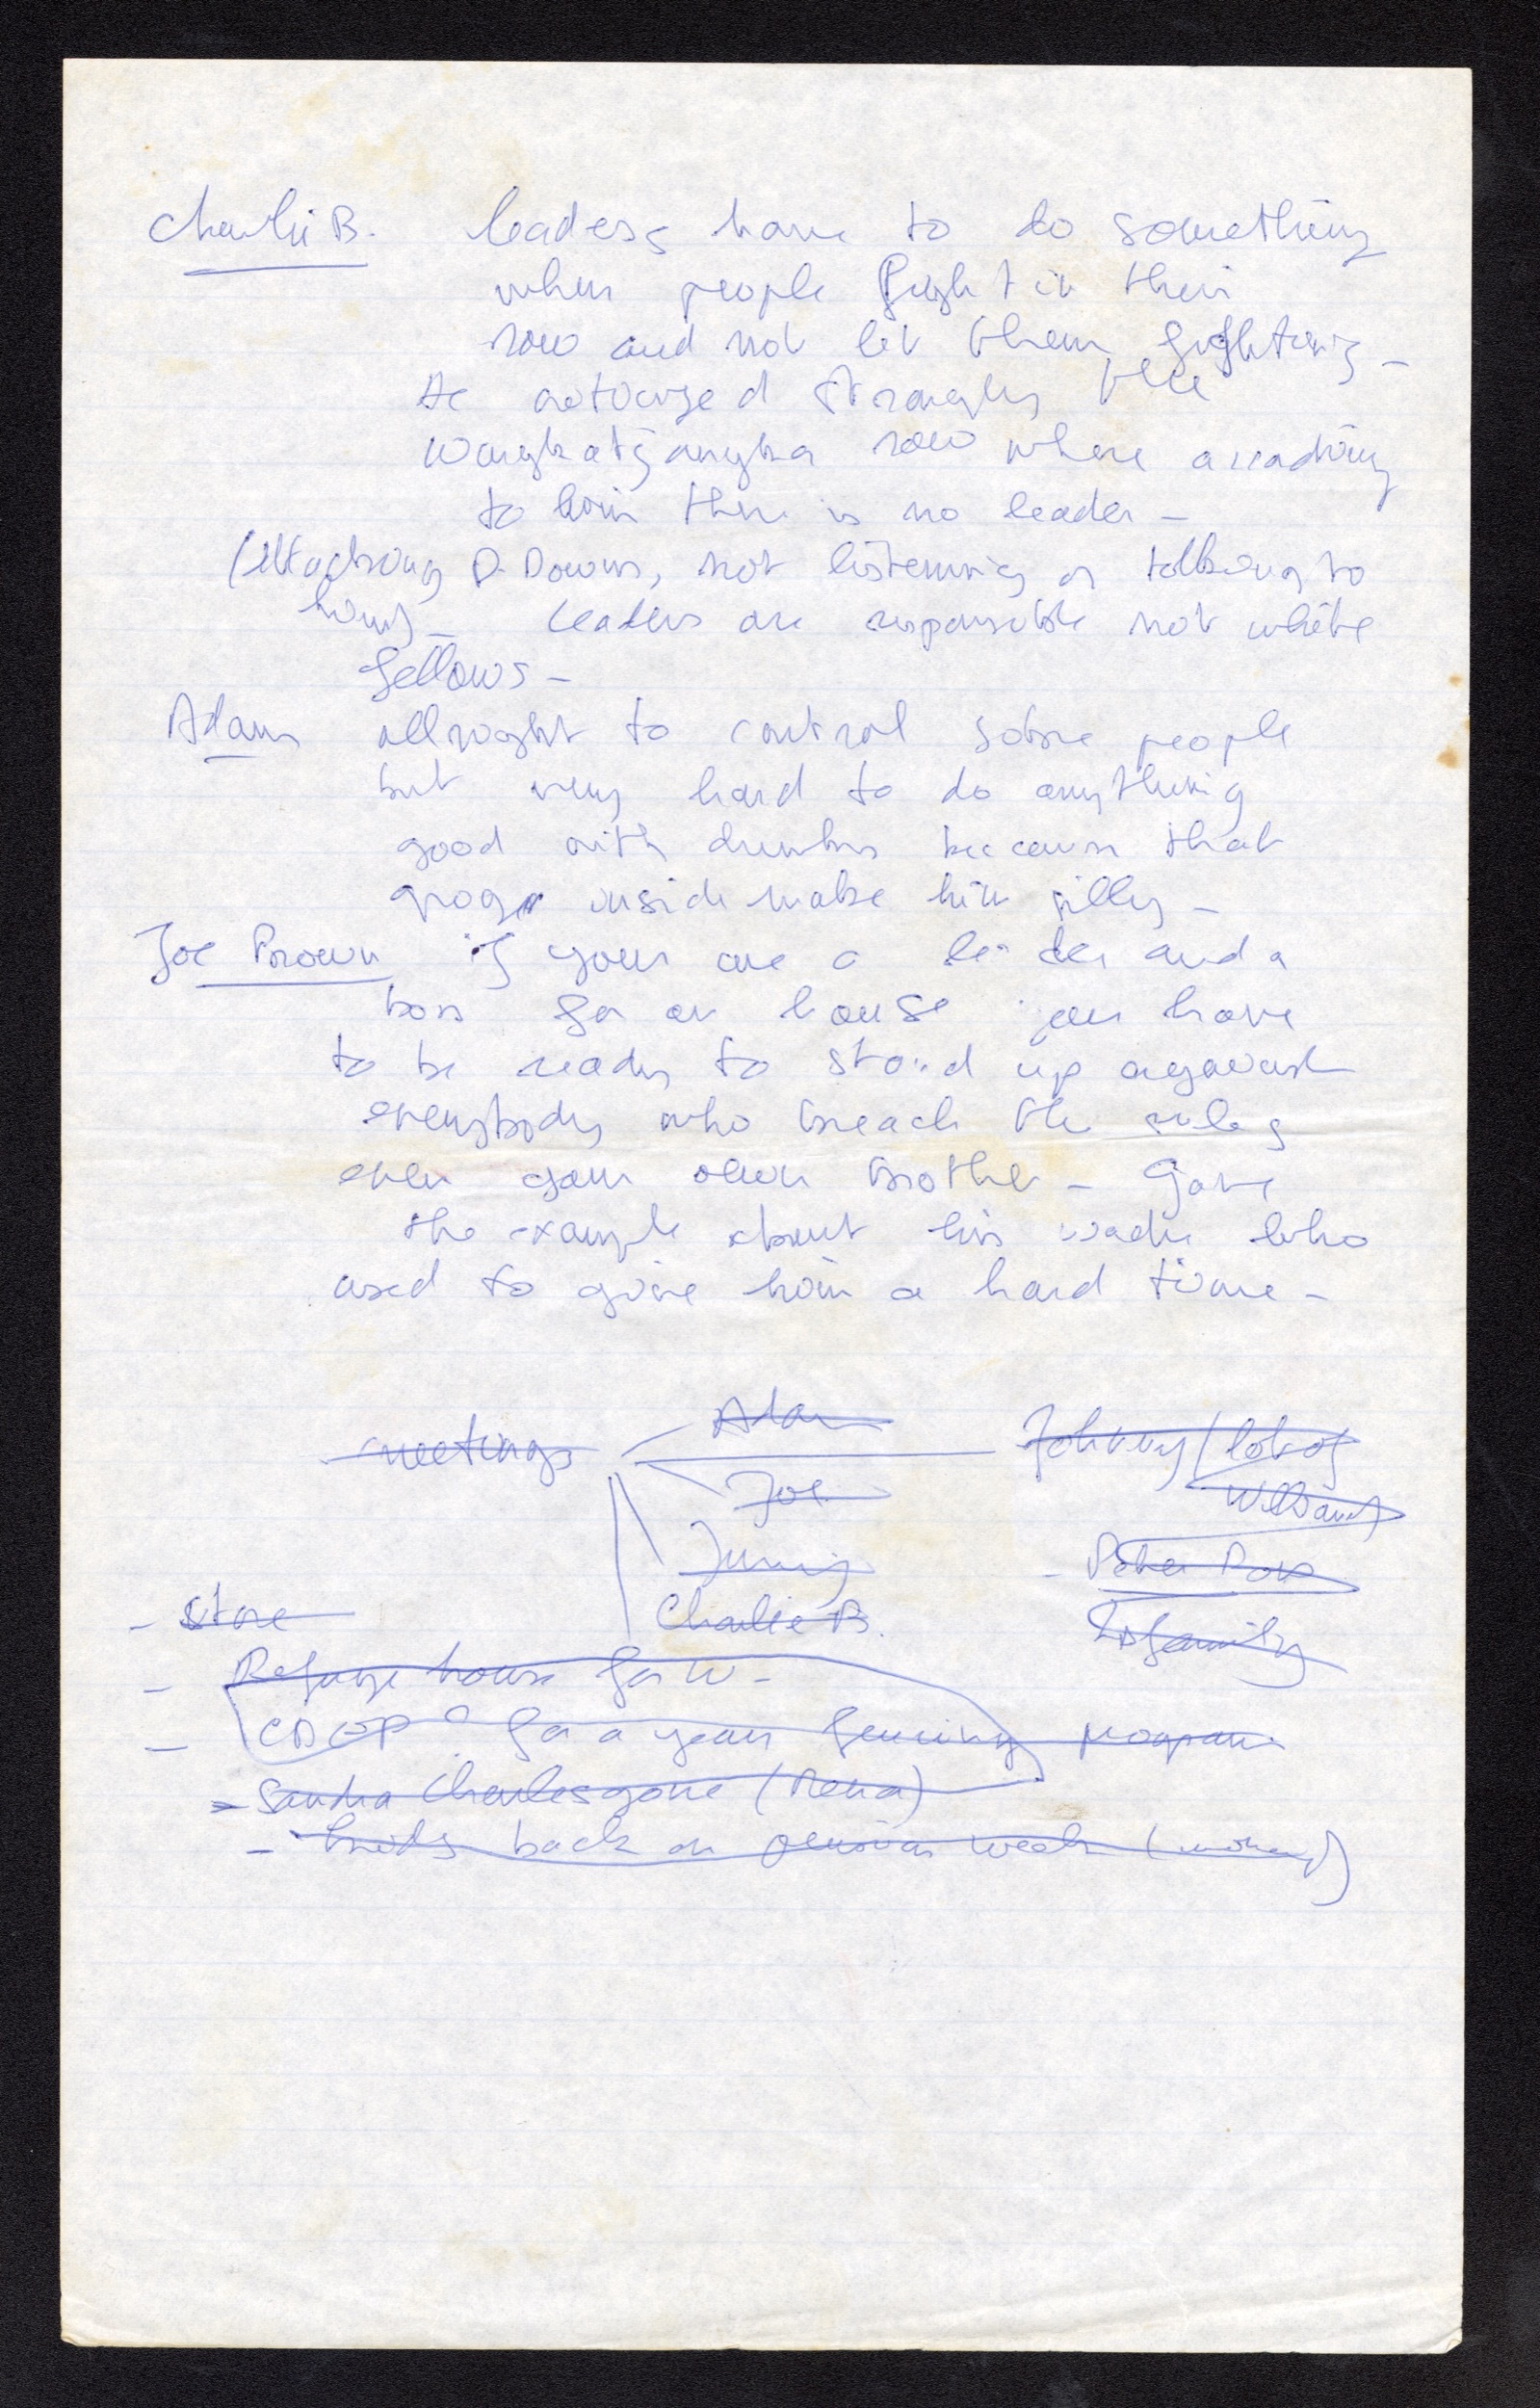 Charlie B. leaders have to do something
when people fight in their
row and not let them fighting -
He criticized strongly the
Wangkatjungka row where according
to him there is no leader -
(attacking D. Downs, not listening or talking to
him) - Leaders are responsible not white
fellows -
Adam allright to control sobre people
but very hard to do anything
good with drunks because that
grog inside make him silly -
Joe Brown if your are a leader and a
boss for an house you have
to be ready to stand up against
everybody who breach the rules
even your own brother - Gave
the example about his who
used to give him a hard time -
Adam
meetings Johnny /
Joe Williams
Jimmy - Peter Ross
- store Charlie B. family
- Refuge house for W -
- CDEP for a year fencing program
- Sandra Charles gone (Rena)
- kids back on pension week (money)